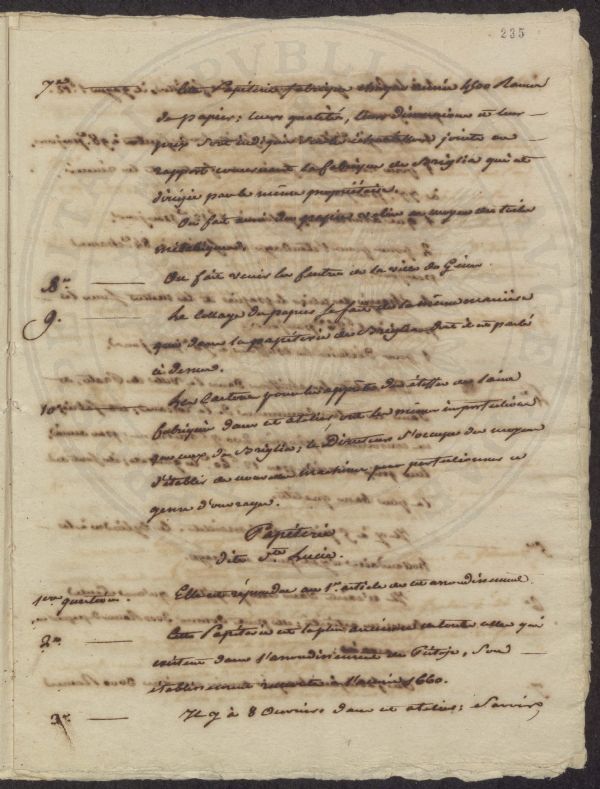 235
7me Cette Papéterie fabrique chaque année 4500 Rames
de papier; leurs qualité, leurs dimensions et leur
prix sont indiqués dans l'échantillon joints au
rapport concernant la fabrique de Briglia qui est
dirigée par le même propriétaire.
On fait aussi des papiers velin au moyen des toiles
métaliques.
8e On fait venir les feutres de la ville de Gênes.
9. Le Collage du papier se fait de la même manière
que dans la papéterie de Briglia dont il est parlé
ci dessus.
10e Les Cartons pour les apprêts des étoffes de laine
fabriqués dans cet atelier ont les mêmes imperfections
que ceux de Briglia; le Directeur s'occupe des moyens
d'établir de nouvelles machines pour perfectionner ce
genre d'ouvrage.
Papéterie
dite Ste. Lucie.
1ere question. Elle est répondue au 1er article de cet arrondissement.
2e Cette Papéterie est la plus ancienne de toutes celles qui
existent dans l'arrondissement de Pistoje, Son
établissement remonte à l'année 1660.
3e Il y à 8 Ouvriers dans cet atelier; Savoir,